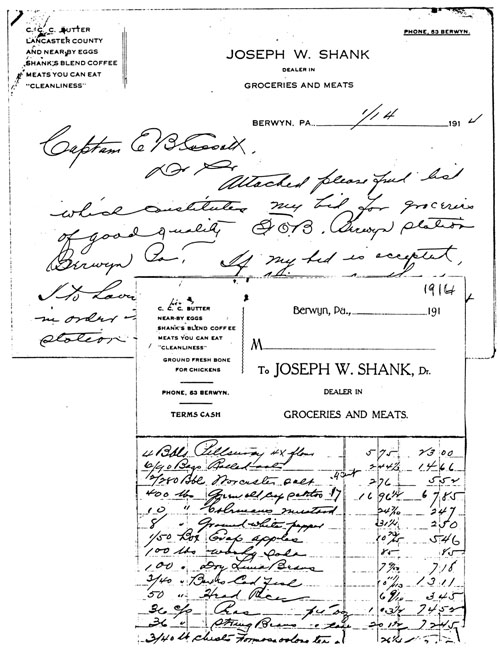 C. C. C. BUTTER
LANCASTER COUNTY
AND NEAR-BY EGGS
SHANK'S BLEND COFFEE
MEATS YOU CAN EAT
"CLEANLINESS"
PHONE, 63 BERWYN.
JOSEPH W. SHANK
DEALER IN
GROCERIES AND MEATS
BERWYN, PA. 1/14 191
Captain E B Cassatt.
Dr Sir
Attached please find list
which constitutes my bid for groceries
of good quality F.O.B. Berwyn station
Berwyn Pa. If my bid is accepted,
I to have
in order
station
C. C. C. BUTTER
NEAR-BY EGGS
SHANK'S BLEND COFFEE
MEATS YOU CAN EAT
"CLEANLINESS"
GROUND FRESH BONE
FOR CHICKENS
PHONE, 63 BERWYN.
TERMS CASH
1914
Berwyn, Pa., 191
M
To JOSEPH W. SHANK, Dr.
DEALER IN
GROCERIES AND MEATS.
4 Bbls Pillsbury flour 575 2300
6/90 Bags Rolled oats 1466
2/280 Bbl Worcester salt 276 552
400 lbs 6785
10 " Colemans mustard 247
8 " Ground white pepper 250
1/50 Box Evap apples 546
100 lbs Soda 85 85
100 " Dry Lima Beans 718
3/40 " Cod Fish 1311
50 " Head Rice 345
36 c/s Peas 7452
36 " String Beans 7245
3/40 lb chests Formosa oolong tea